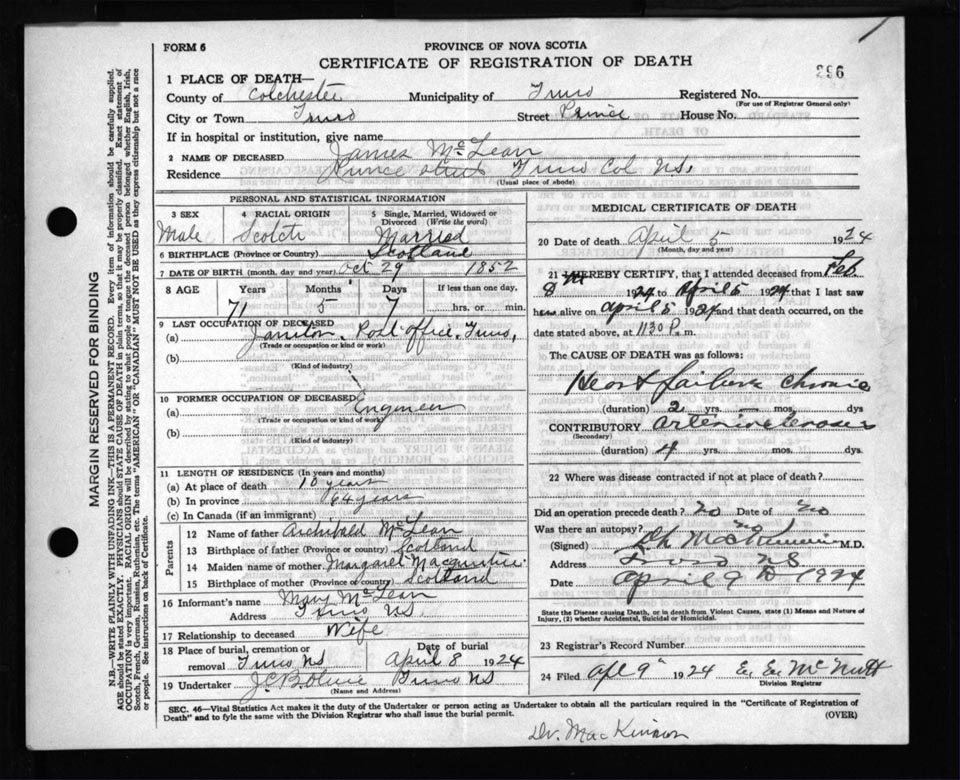 FORM 6
PROVINCE OF NOVA SCOTIA
CERTIFICATE OF REGISTRATION OF DEATH
296
1 PLACE OF DEATH—
County of Colchester Municipality of Truro Registered No.
(For use of Registrar General only)
City or Town Truro Street Prince House No.
If in hospital or institution, give name
2 NAME OF DECEASED James McLean
Residence Prince Street Truro Col NS.
(Usual place of abode)
PERSONAL AND STATISTICAL INFORMATION
3 SEX Male
4 RACIAL ORIGIN Scotch
5 Single, Married, Widowed or Divorced (Write the word) Married
6 BIRTHPLACE (Province or Country) Scotland
7 DATE OF BIRTH (month, day and year) Oct 29 1852
8 AGE Years Months Days If less than one day,
71 5 7 hrs. or min.
9 LAST OCCUPATION OF DECEASED
(a) Janitor, Post office, Truro,
(Trade or occupation or kind or work)
(b)
(Kind of industry)
10 FORMER OCCUPATION OF DECEASED
(a) Engineer
(Trade or occupation or kind or work)
(b)
(Kind of industry)
11 LENGTH OF RESIDENCE (In years and months)
(a) At place of death 10 years
(b) In province 64 years
(c) In Canada (if an immigrant)
Parents
12 Name of father Archibald McLean
13 Birthplace of father (Province or country) Scotland
14 Maiden name of mother Margaret
15 Birthplace of mother (Province or country) Scotland
16 Informant's name Mary McLean
Address Truro NS
17 Relationship to deceased Wife
18 Place of burial, cremation or removal Truro NS
Date of burial April 8 1924
19 Undertaker Truro NS
(Name and Address)
MEDICAL CERTIFICATE OF DEATH
20 Date of death April 5 1924
(Month, day and year)
21 I HEREBY CERTIFY, that I attended deceased from Feb.
8 1924 to April 5 1924 that I last saw
h alive on April 5 1924 and that death occurred, on the
date stated above, at 11.30 P.m.
The CAUSE OF DEATH was as follows:
Heart failure chronic
(duration) 2 yrs. mos. dys
CONTRIBUTORY arteriosclerosis
(Secondary)
(duration) 4 yrs. mos. dys.
22 Where was disease contracted if not at place of death?
Did an operation precede death? no Date of no
Was there an autopsy? no
(Signed) M.D.
Address Truro NS
Date April 9th 1924
State the Disease causing Death, or in death from Violent Causes, state (1) Means and Nature of
Injury, (2) whether Accidental, Suicidal or Homicidal.
23 Registrar's Record Number
24 Filed Apl 9th 1924 E. E. McNutt
Division Registrar
SEC. 46—Vital Statistics Act makes it the duty of the Undertaker or person acting as Undertaker to obtain all the particulars required in the "Certificate of Registration of
Death" and to fyle the same with the Division Registrar who shall issue the burial permit.
(OVER)
Dr. MacKinnon
MARGIN RESERVED FOR BINDING
N.B.—WRITE PLAINLY WITH UNFADING INK—THIS IS A PERMANENT RECORD. Every item of information should be carefully supplied.
AGE should be stated EXACTLY. PHYSICIANS should STATE CAUSE OF DEATH in plain terms, so that it may be properly classified. Exact statement of
OCCUPATION is very important. RACIAL ORIGIN will be described by stating to what people or tongue the deceased person belonged whether English, Irish,
Scotch, French, German, Russian, Ruthenian, etc. The terms "AMERICAN" OR "CANADIAN" MUST NOT BE USED as they express citizenship but not a race
or people. See instructions on back of Certificate.